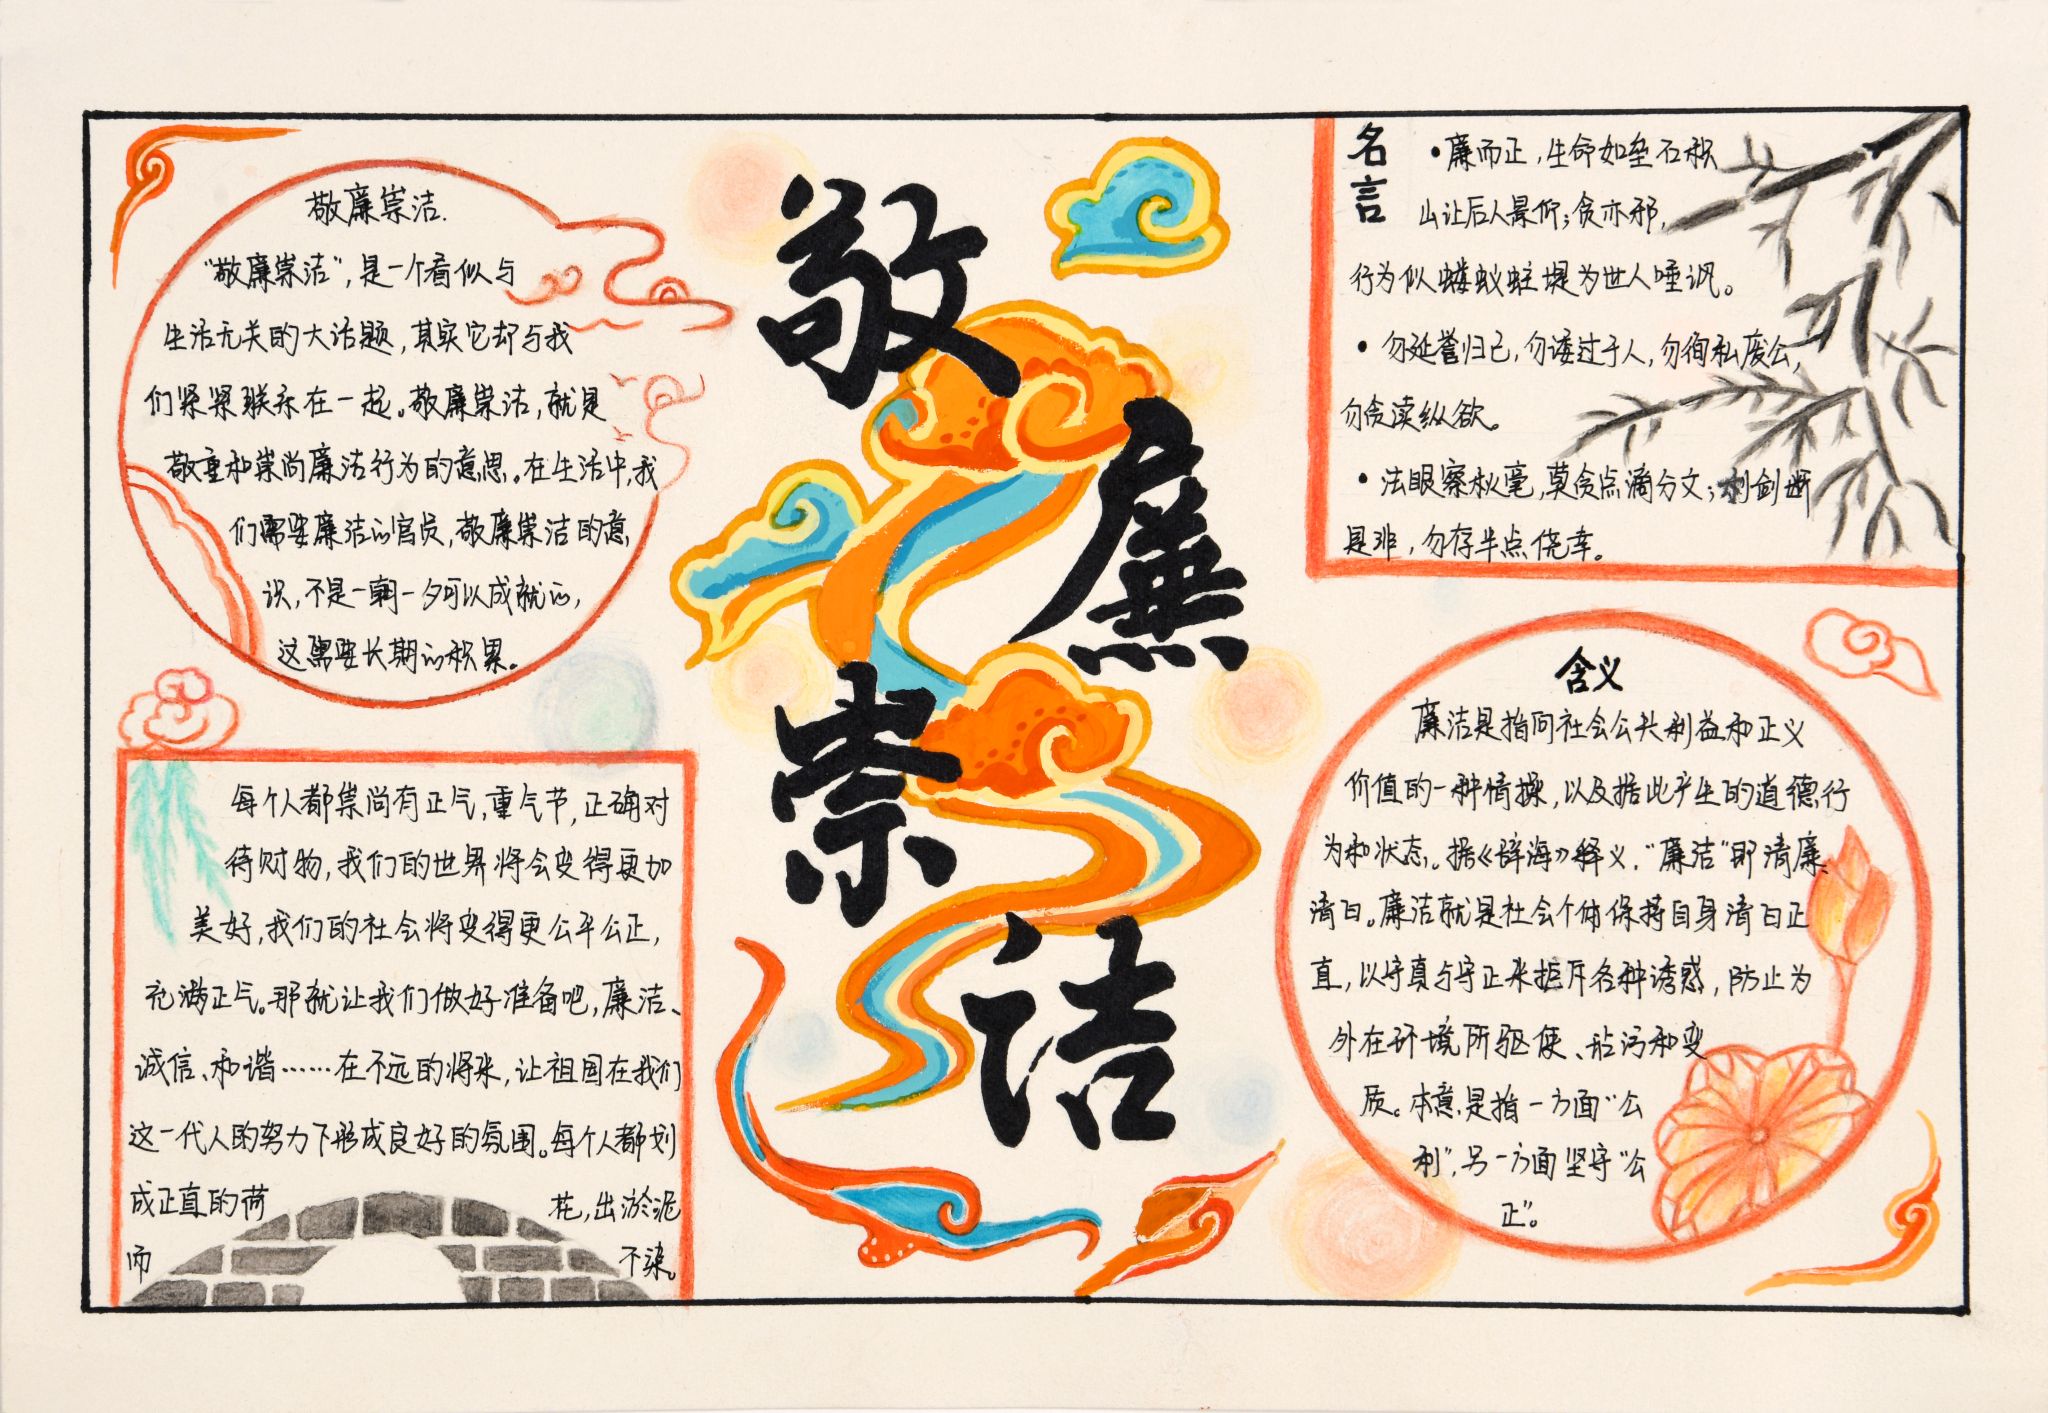 敬廉崇洁.
“敬廉崇洁”,是一个看似与
生活无关的大话题,其实它却与我
们紧紧联系在一起。敬廉崇洁,就是
敬重和崇尚廉洁行为的意思。在生活中,我
们需要廉洁的官员,敬廉崇洁的意
识,不是一朝一夕可以成就的,
这需要长期的积累。
每个人都崇尚有正气,重气节,正确对
待财物,我们的世界将会变得更加
美好,我们的社会将变得更公平公正,
充满正气。那就让我们做好准备吧,廉洁、
诚信、和谐……在不远的将来,让祖国在我们
这一代人的努力下形成良好的氛围。每个人都划
成正直的荷花,出淤泥
而不染。
敬
廉
崇
洁
名言
•廉而正,生命如垒石积
山让后人景仰;贪亦邪,
行为似蝼蚁蛀堤为世人唾讽。
•勿延誉归己,勿诿过于人,勿徇私废公,
勿贪渎纵欲。
•法眼察秋毫,莫贪点滴分文;利剑断
是非,勿存半点侥幸。
含义
廉洁是指向社会公共利益和正义
价值的一种情操,以及据此产生的道德行
为和状态。据《辞海》释义.“廉洁”即清廉、
清白。廉洁就是社会个体保持自身清白正
直,以守真与守正来拒斥各种诱惑,防止为
外在环境所驱使、玷污和变
质。本意是指一方面“公
利”,另一方面坚守“公
正”。